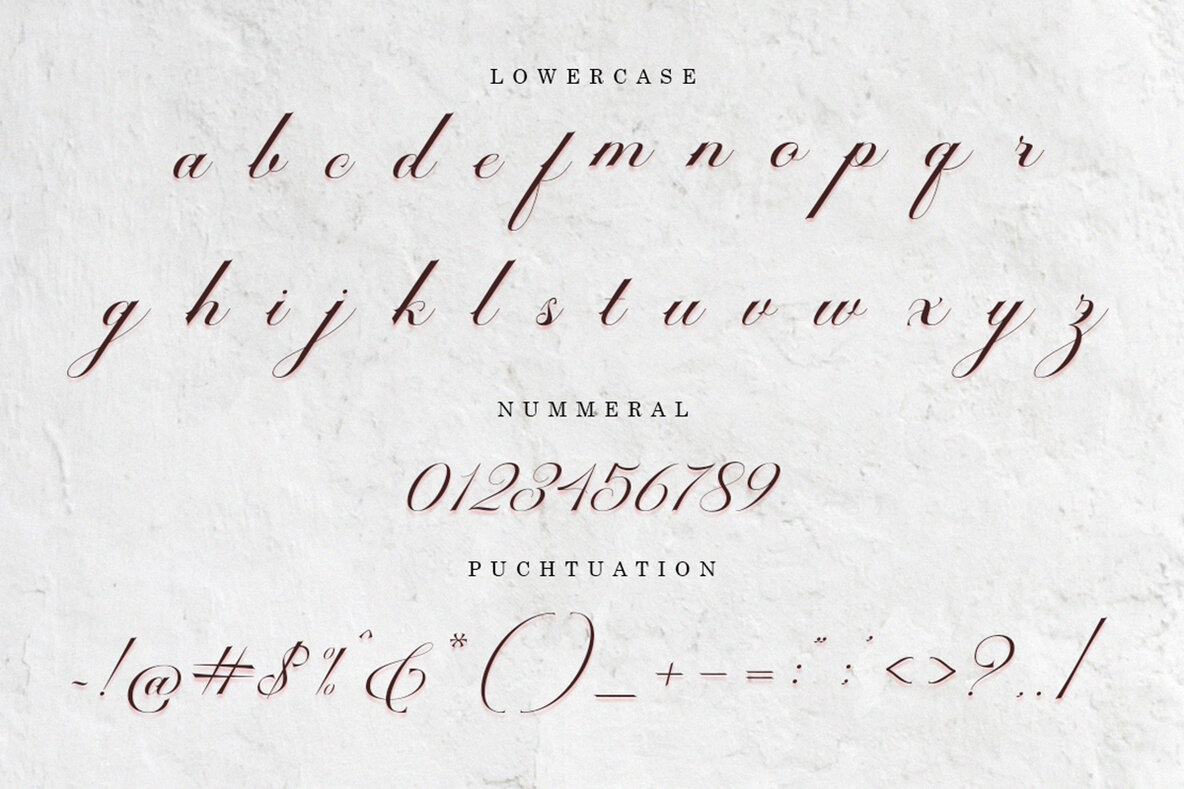 LOWERCASE
a b c d e f m n o p q r
g h i j k l s t u v w x y z
NUMMERAL
0123456789
PUCHTUATION
~!@#$%^&*()_+-=:";'<>?,./